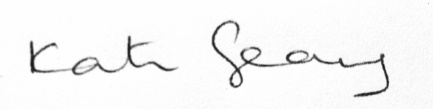 Kate Geary